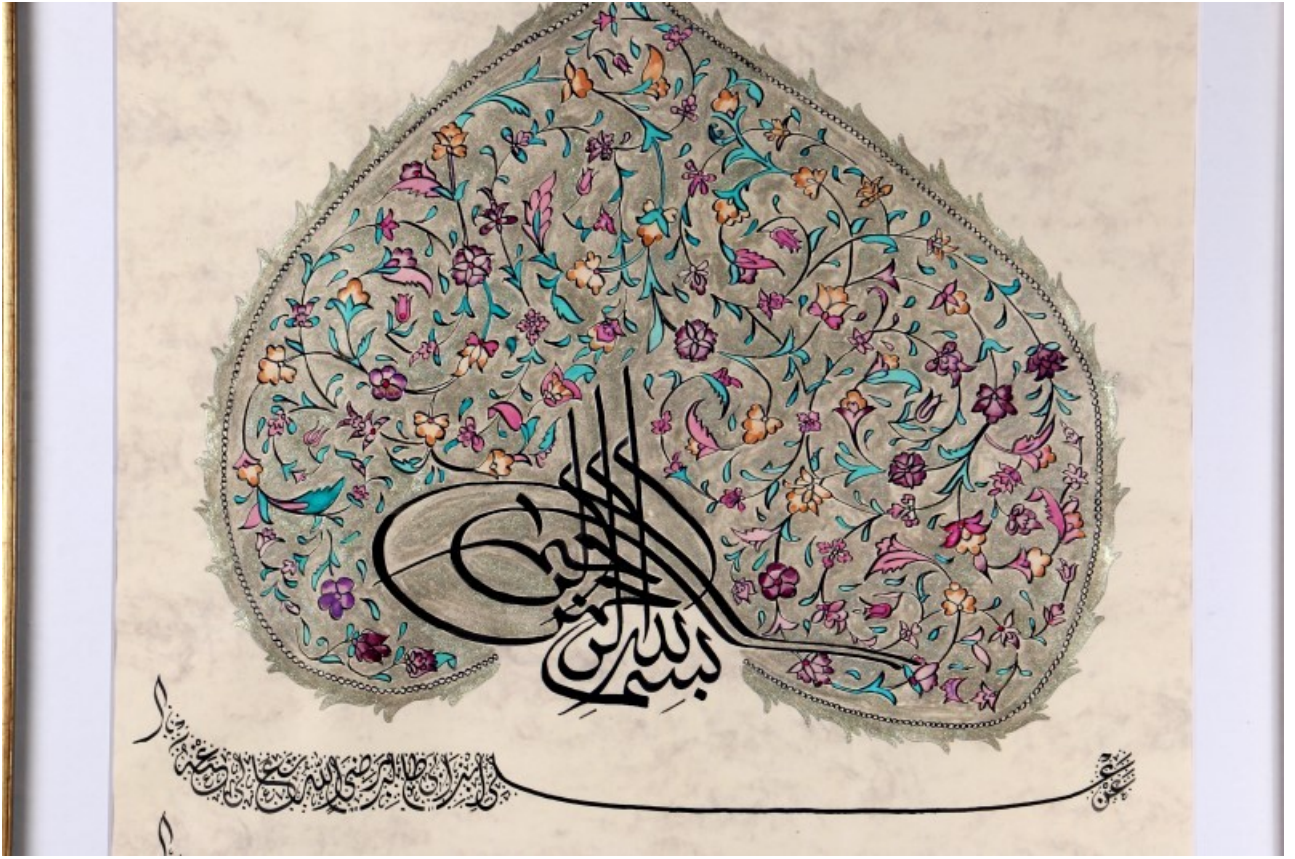 بسم الله الرحمن الرحيم
عن علي ابن ابي طالب رضي الله تعالى عنه